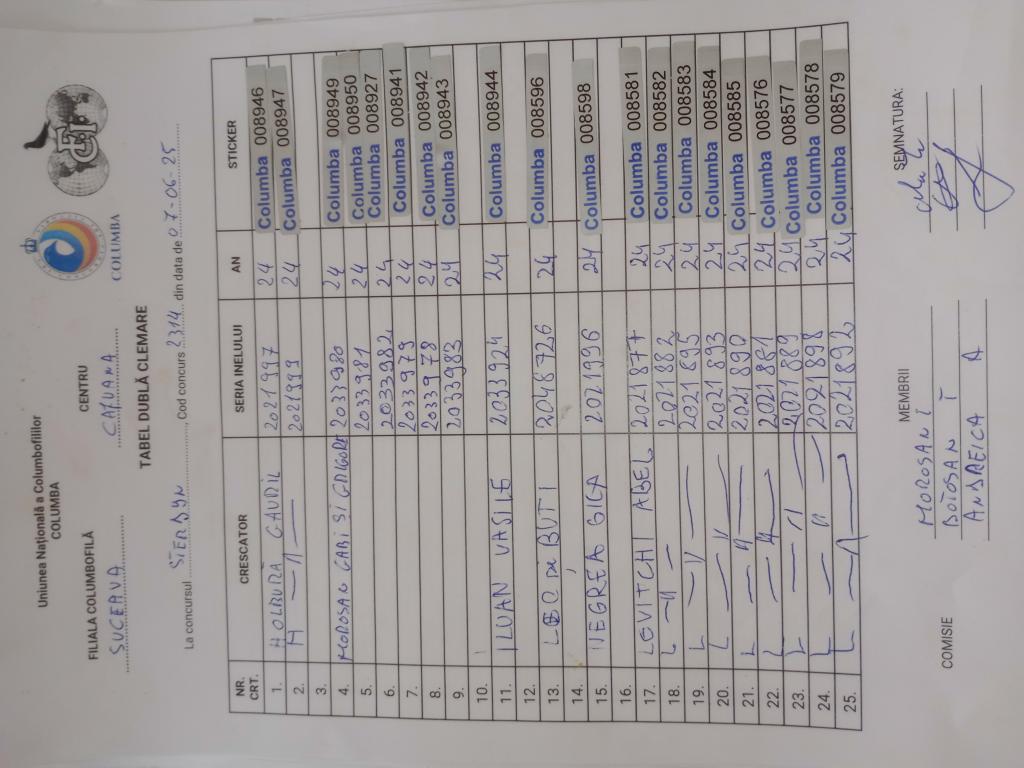 Uniunea Națională a Columbofililor
COLUMBA
FILIALA COLUMBOFILĂ CENTRU
SUCEAVA
COLUMBA
TABEL DUBLĂ CLEMARE
La concursul , Cod concurs 2314 din data de 07-06-25
NR. CRT. CRESCATOR SERIA INELULUI AN STICKER
1. 2021997 24 Columba 008946
2. H —11— 2021999 24 Columba 008947
3.
4. MOROSAN GABI SI GRIGORE 2033980 24 Columba 008949
5. 2033981 24 Columba 008950
6. 2033982 24 Columba 008927
7. 2033979 24 Columba 008941
8. 2033978 24 Columba 008942
9. 2033983 24 Columba 008943
10.
11. ILUAN VASILE 2033924 24 Columba 008944
12.
13. 2048726 24 Columba 008596
14.
15. NEGREA GICA 2021996 24 Columba 008598
16.
17. LOVITCHI ABEL 2021877 24 Columba 008581
18. L —11— 2021882 24 Columba 008582
19. L —11— 2021895 24 Columba 008583
20. L —11— 2021893 24 Columba 008584
21. L —11— 2021890 24 Columba 008585
22. L —11— 2021881 24 Columba 008576
23. L —11— 2021889 24 Columba 008577
24. L —11— 2021898 24 Columba 008578
25. L —11— 2021892 24 Columba 008579
COMISIE MEMBRII SEMNATURA:
MOROSAN I
BOIOSAN I
ANDREICA A